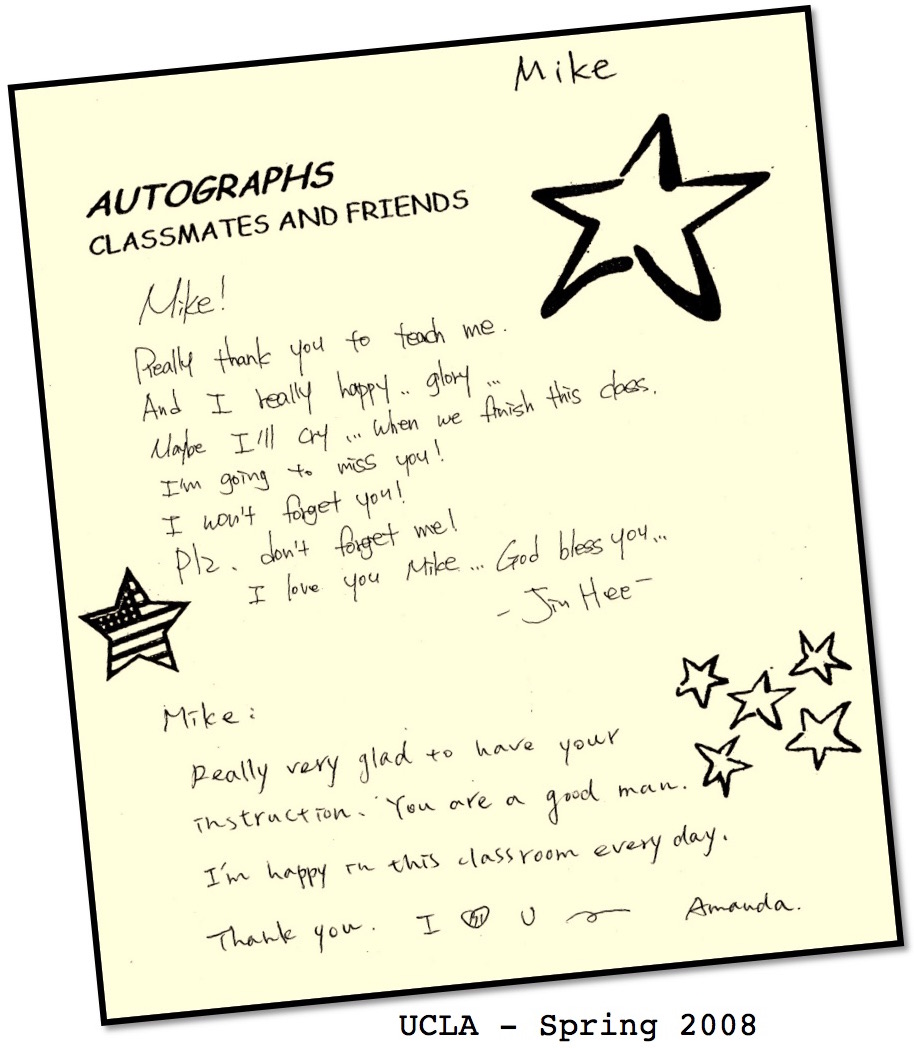 Mike
AUTOGRAPHS
CLASSMATES AND FRIENDS
Mike!
Really thank you to teach me.
And I really happy.. glory...
Maybe I'll cry ... when we finish this class.
I'm going to miss you!
I won't forget you!
Plz. don't forget me!
I love you Mike... God bless you...
- Jin Hee -
Mike:
Really very glad to have your
instruction. You are a good man.
I'm happy in this classroom every day.
Thank you. I ♡ U ~ Amanda.
UCLA - Spring 2008